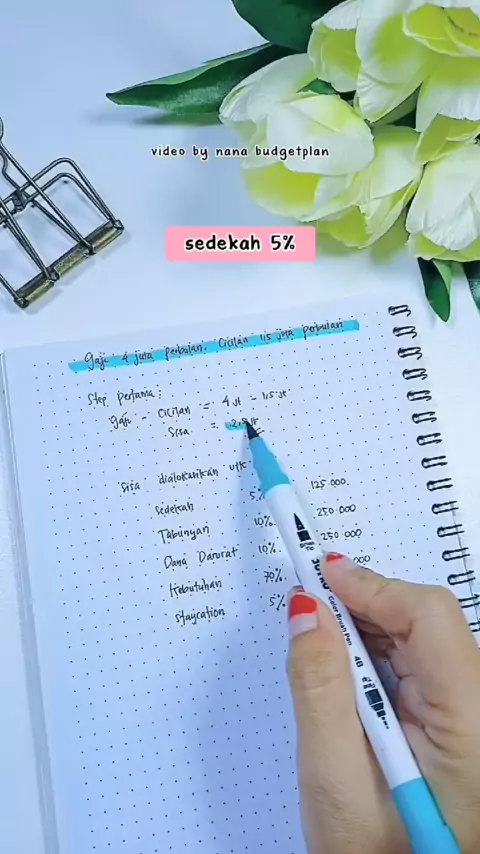 video by nana budgetplan
sedekah 5%
Gaji 4 juta perbulan, Cicilan 1.5 juta perbulan
Step pertama:
gaji - Cicilan = 4 jt - 1.5 jt
Sisa = 2.5 jt
Sisa dialokasikan utk
sedekah 5% 125.000
Tabungan 10% 250.000
Dana Darurat 10% 250.000
Kebutuhan 70%
staycation 5%
Color Brush Pen